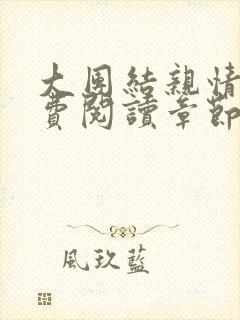 大團結親情
費閱讀章節
風玖藍